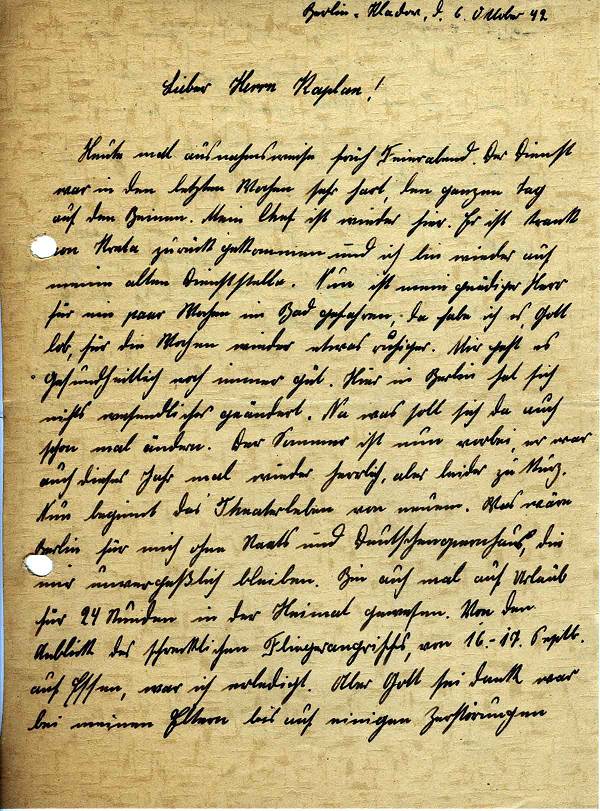 Berlin-Kladow, d. 6. Oktober 42
Lieber Herrn Kaplan!
Heute mal ausnahmsweise früh Feierabend. Der Dienst
war in den letzten Wochen sehr hart, den ganzen Tag
auf den Beinen. Mein Chef ist wieder hier. Er ist krank
von zurück gekommen und ich bin wieder auf
meine alten Dienststelle. Nun ist mein gnädiger Herr
für ein paar Wochen im Bad gefahren, da habe ich es, Gott
lob, für die Wochen wieder etwas ruhiger. Mir geht es
Gesundheitlich noch immer gut. Hier in Berlin hat sich
nichts wesendliches geändert. Na was soll sich da auch
schon mal ändern. Der Sommer ist nun vorbei, er war
auch dieses Jahr mal wieder herrlich, aber leider zu Kurz.
Nun beginnt das Theaterleben von neuem. Was wäre
Berlin für mich ohne Staats und Deutschenopernhaus, die
mir unvergeßlich bleiben. Bin auch mal auf Urlaub
für 24 Stunden in der Heimat gewesen. Von den
Anblick des schrecklichen Fliegerangriffs, von 16.-17. Septb.
auf Essen, war ich erledigt. Aber Gott sei dank war
bei meinen Eltern bis auf einigen Zerstörungen